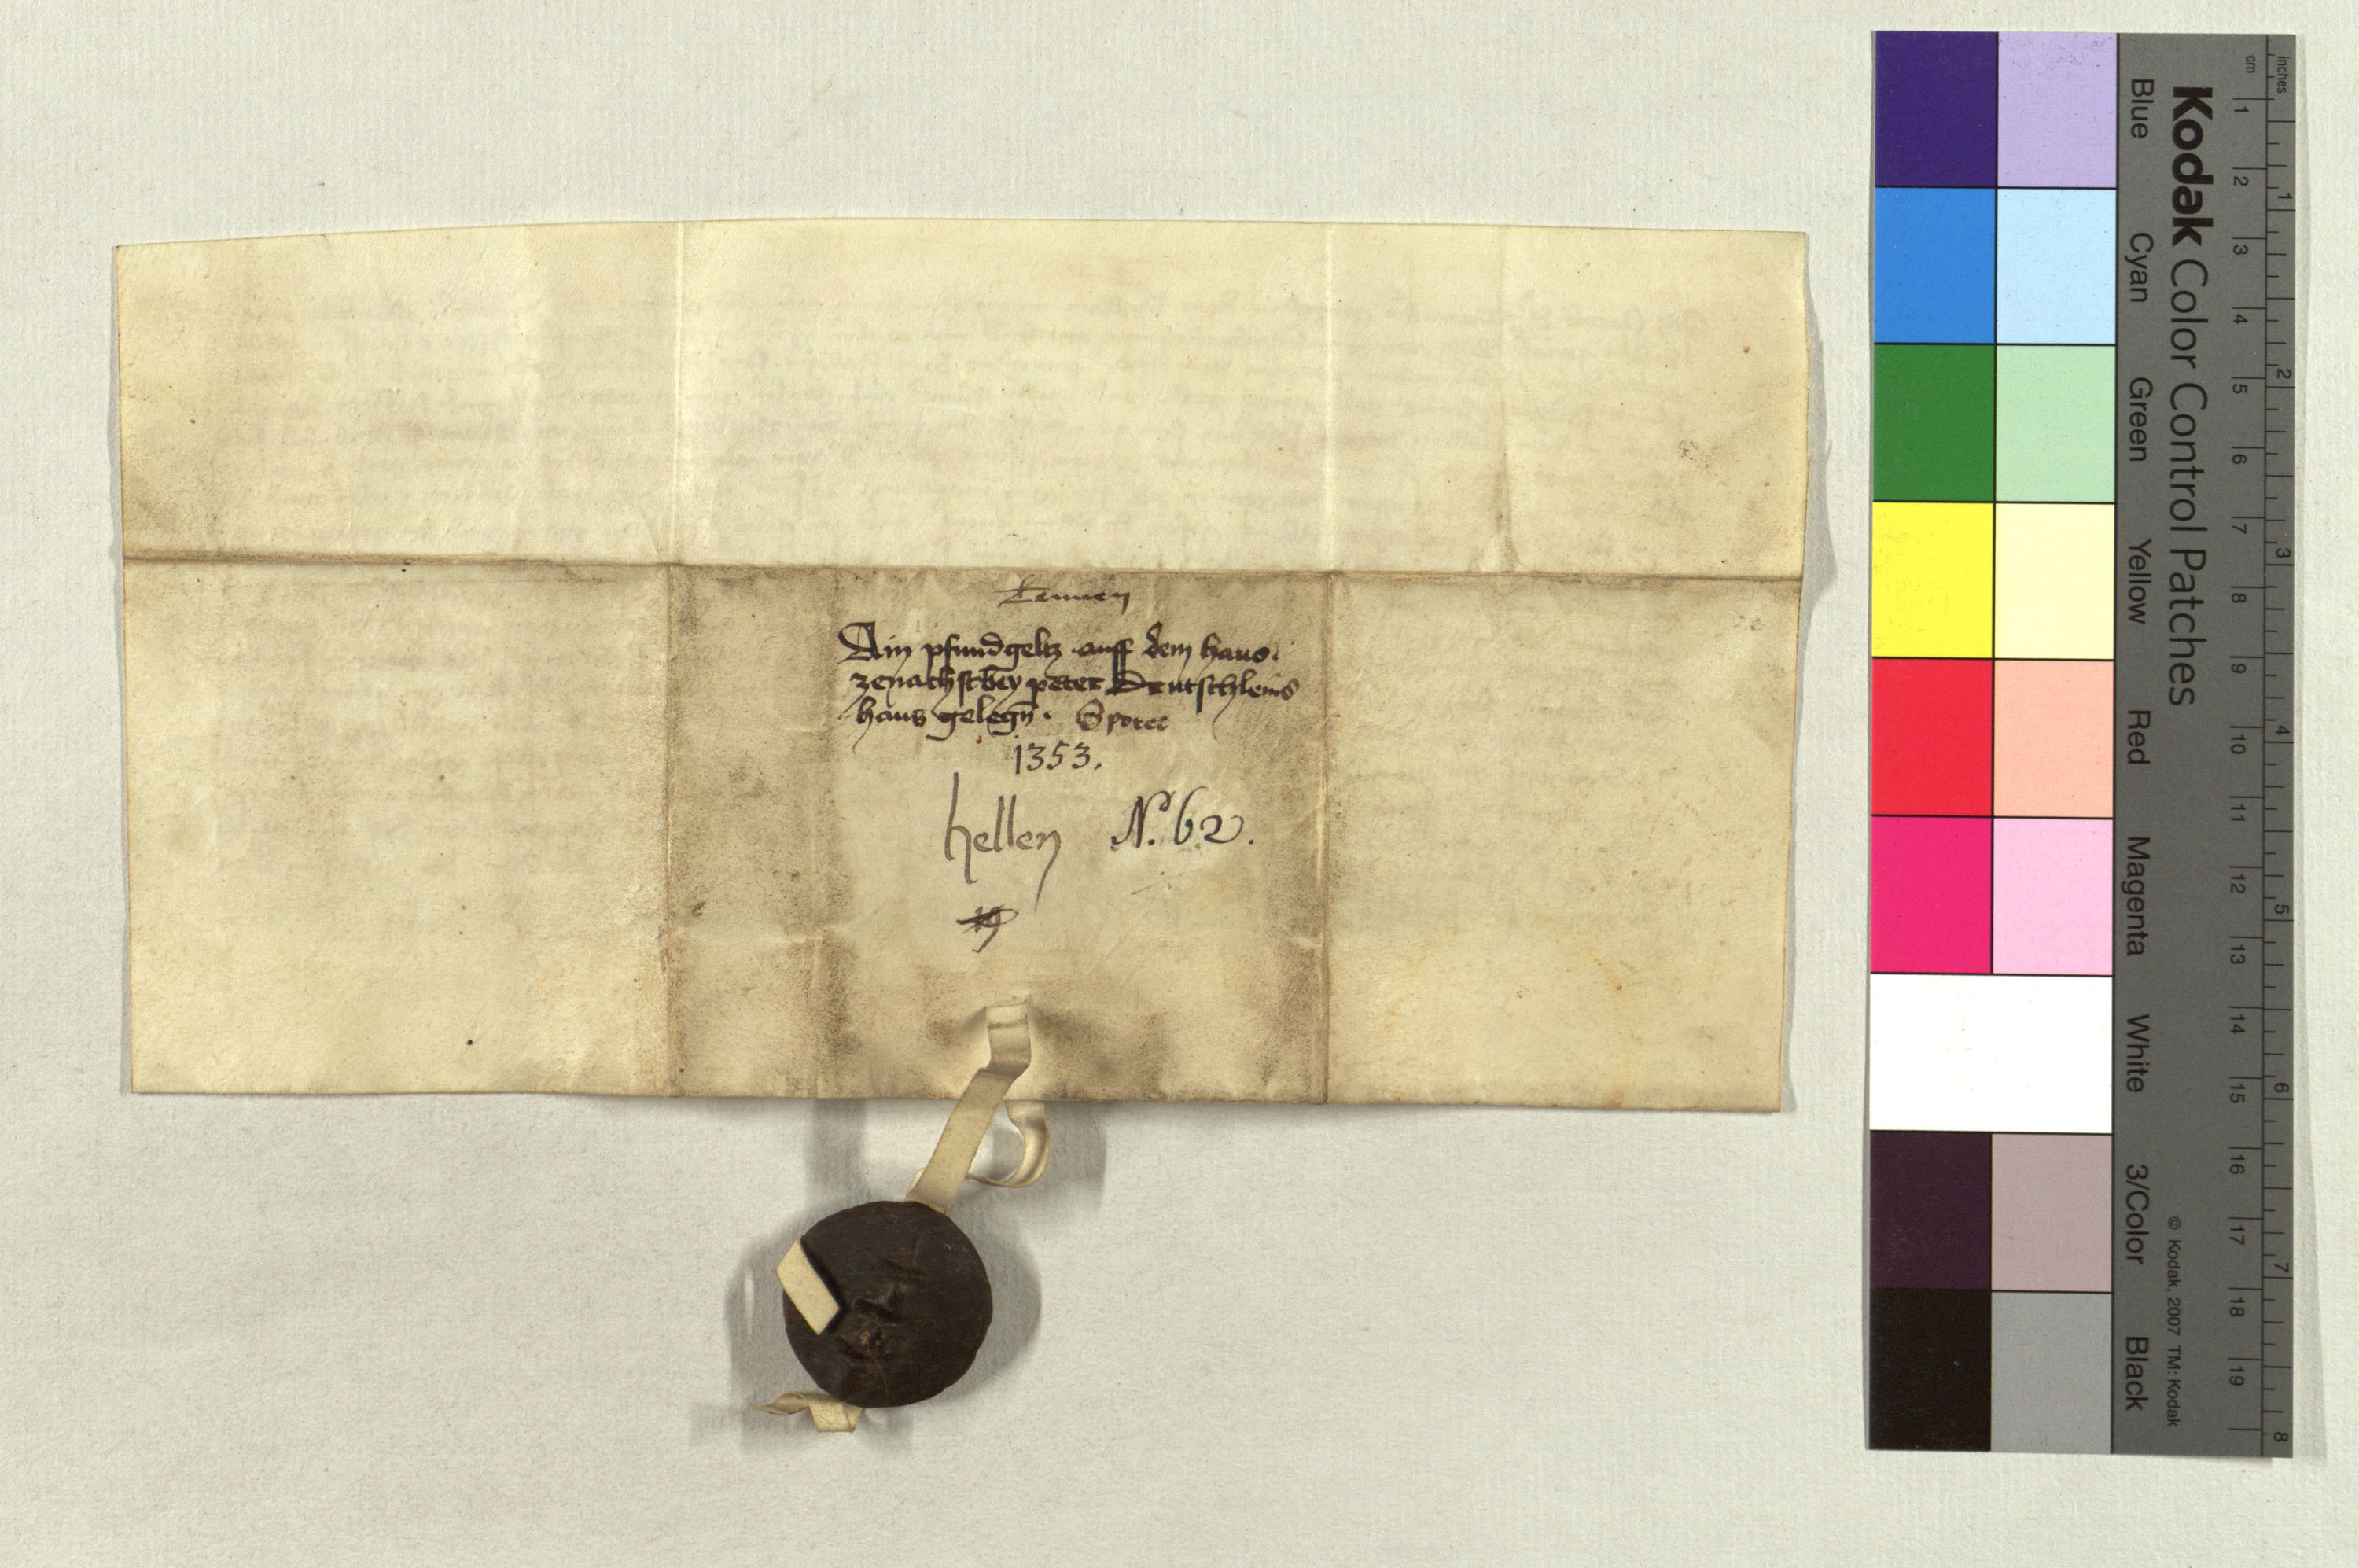 Tennen
Ain pfundgeltz auff dem haus.
zenachst bey peter Drutschleins
haus gelegn̄. Sporer
1353.
hellen N.º 62.
19
Kodak Color Control Patches
Blue Cyan Green Yellow Red Magenta White 3/Color Black
© Kodak, 2007 TM: Kodak
cm 1 2 3 4 5 6 7 8 9 10 11 12 13 14 15 16 17 18 19
inches 1 2 3 4 5 6 7 8